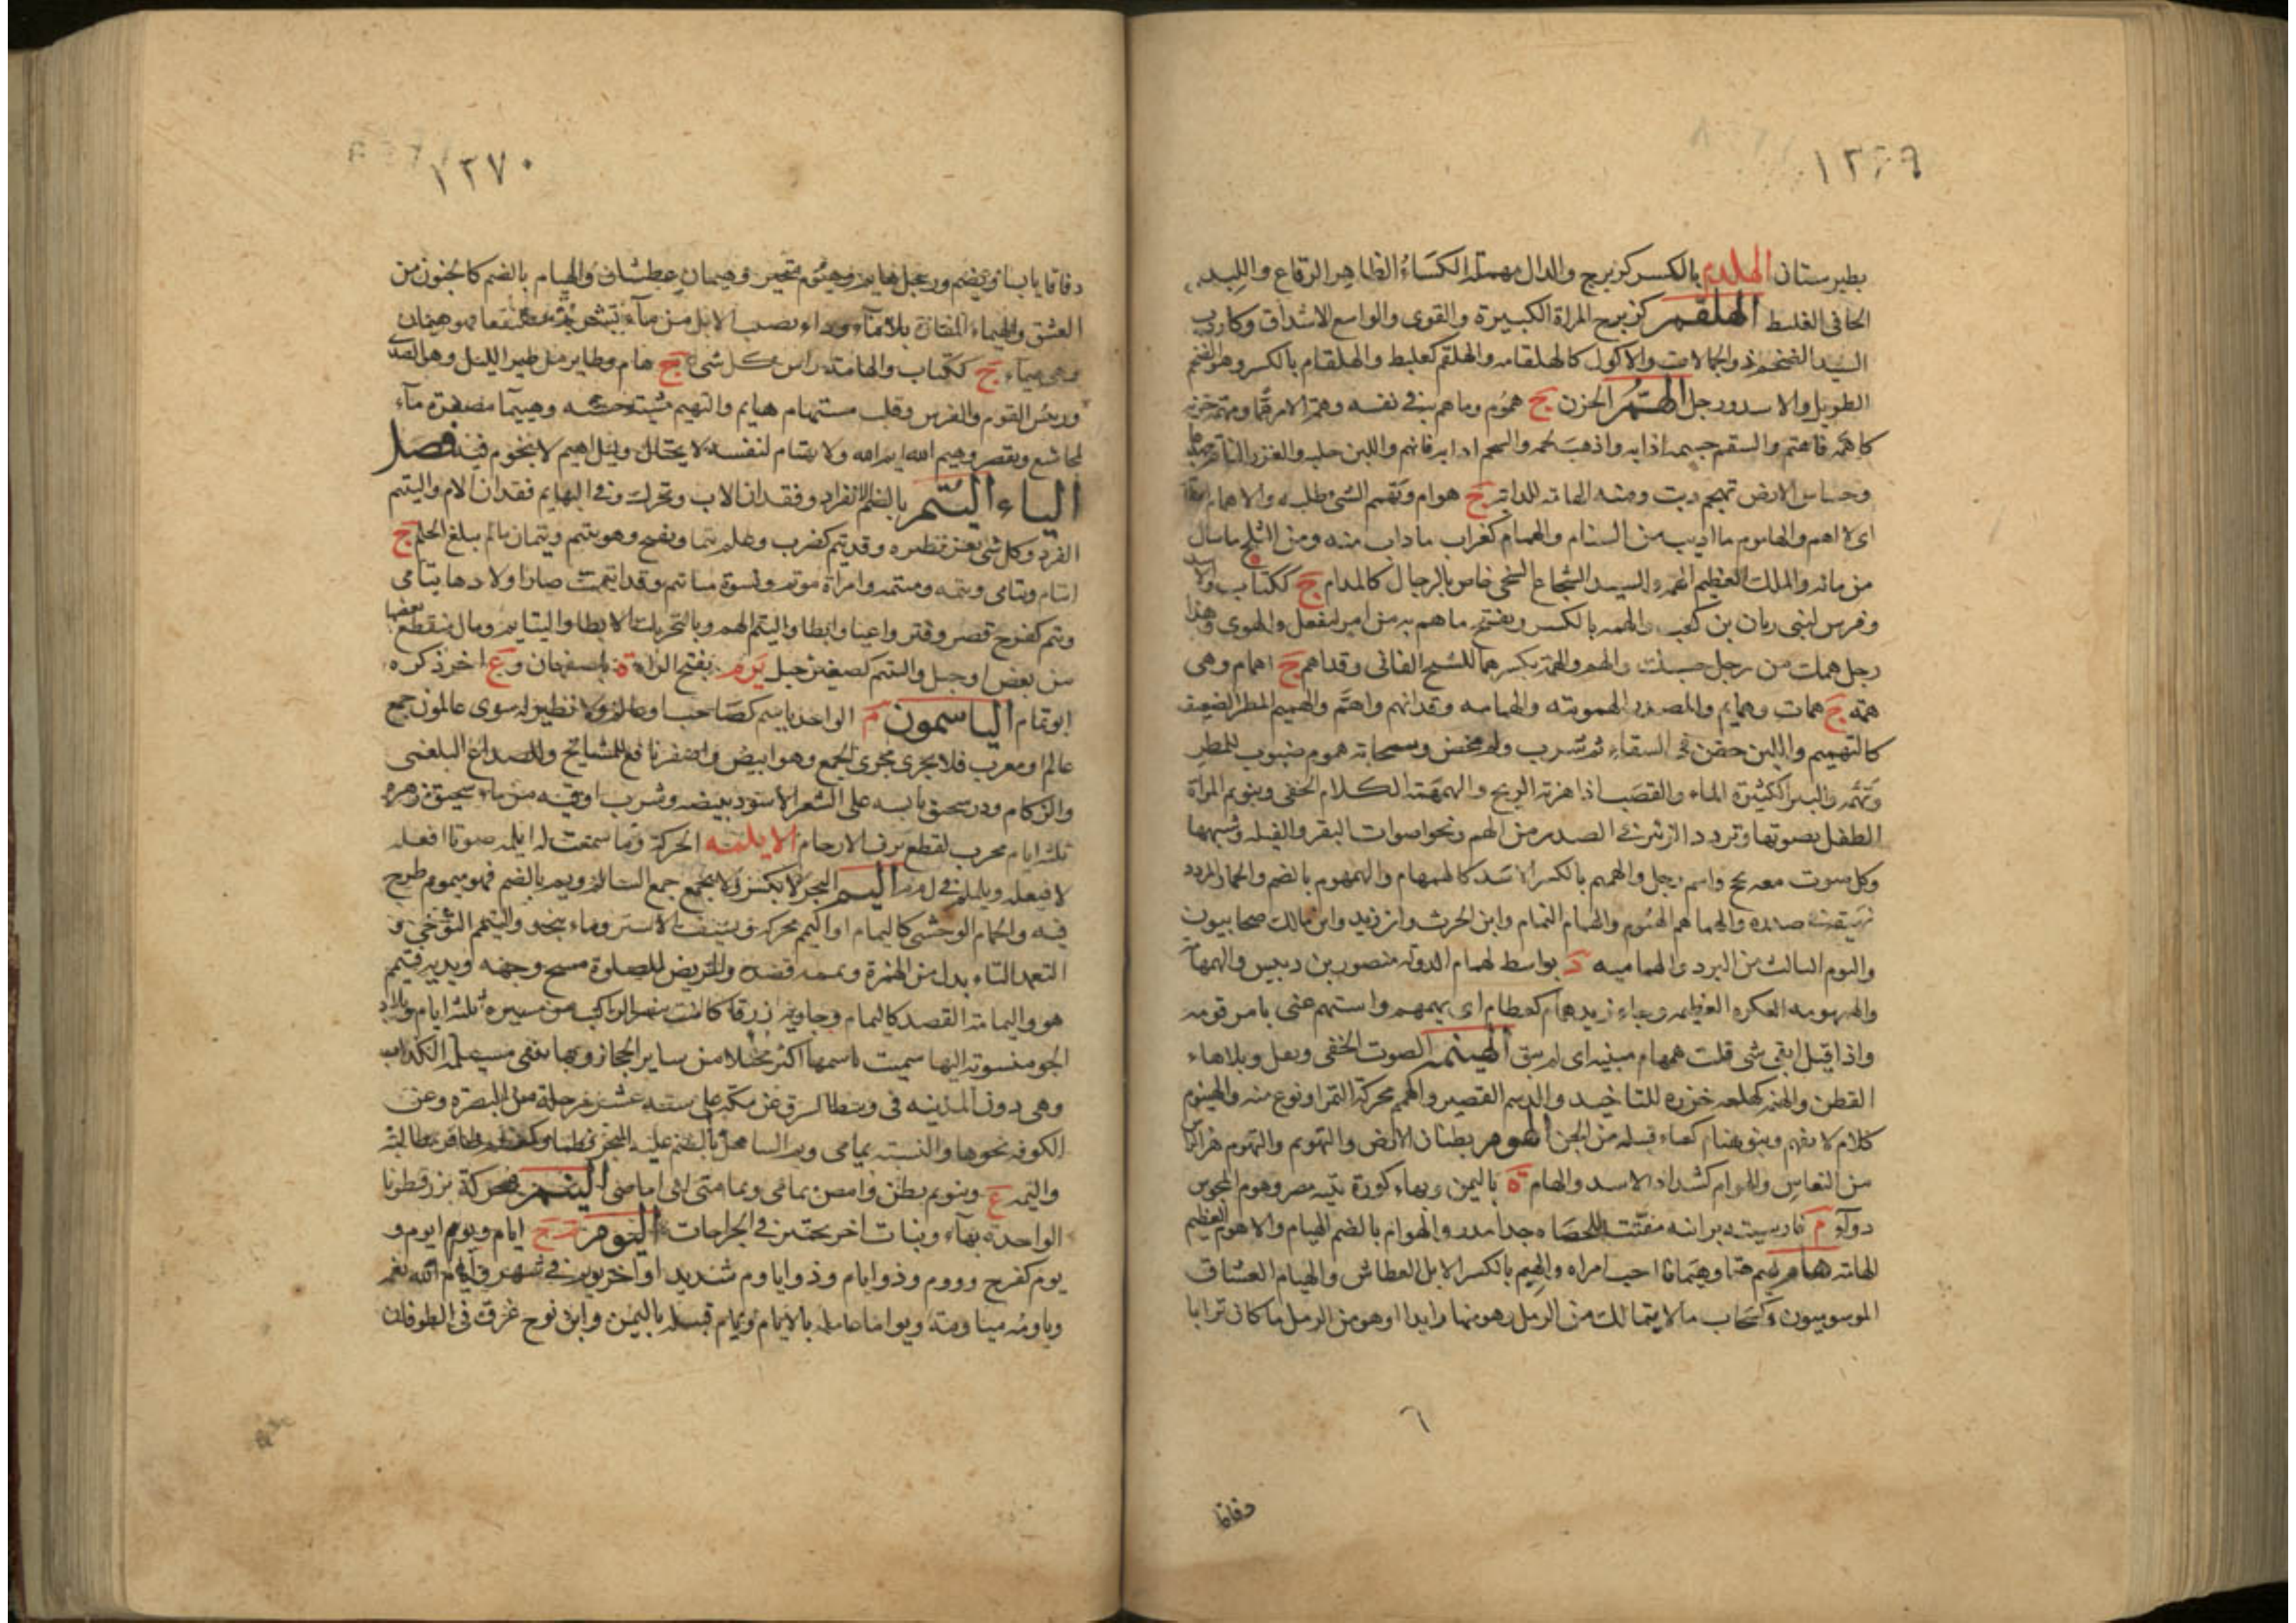 ١٣٦٩
بطبرستان الهلدم بالكسر كزبرج والدال مهملة الكساء الظاهر الرقاع واللبد
الجافى الغليظ الهلقم كزبرج المراة الكبيرة والقوى والواسع الاشداق وكاردب
السيد الضخم ذو الحمالات والاكول كالهلقامه والهلقم كعلبط والهلقام بالكسر وهو الضخم
الطويل والاسد ورجل الهم الحزن ج هموم وما هم به فى نفسه وهمه الامر هما ومهمة حزنه
كاهمه فاهتم والسقم جسمه اذابه واذهب لحمه والشحم اذابه فانهم واللبن حلبه والغزر الناقة جهدها
وخشاش الارض تهم دبت ومنه الهامة للدابة ج هوام وتهمم الشى طلبه ولا همام
اى لا اهم والهاموم ما اذيب من السنام والهمام كغراب ما ذاب منه ومن الثلج ما سال
من مائه والملك العظيم الهمة والسيد الشجاع السخى خاص بالرجال كالهمام ج ككتاب والاسد
وفرس لبنى زبان بن كعب والهمه بالكسر ويفتح ما هم به من امر ليفعل والهوى وهذا
رجل همك من رجل حسبك والهم والهمة بكسرهما للشيخ الفانى وقد اهم ج اهمام وهى
همه ج همات وهمايم والمصدر الهمومة والهمامه وقد انهم واهتم والهميم المطر الضعيف
كالتهميم واللبن حقن فى السقاء ثم شرب ولم يمخض وسحابة هموم صبوب للمطر
والبئر الكثيرة الماء والقصب اذا هزته الريح والهمهمة الكلام الخفى وتنويم المراة
الطفل بصوتها وتردد الزئير فى الصدر من الهم ونحو اصوات البقر والفيله وشبهها
وكل صوت معه بحح واسم رجل والهمهم بالكسر الاسد كالهمهام والهمهوم بالضم والحمار المردد
نهيقه فى صدره والهماهم الهموم والهمام النمام وابن الحرث وابن زيد وابن مالك صحابيون
واليوم الثالث من البرد والهماميه د بواسط لهمام الدولة منصور بن دبيس والهمهامة
والهمهومه العكره العظيمه وجاء زيد همام كقطام اى يهمهم واستهم عنى بامر قومه
واذا قيل ابقى شى قلت همهام مبنيه اى لم يبق الهينمه الصوت الخفى وبقل وبلا هاء
القطن والهنمه كهلعه خرزه للتاخيذ والدميم القصير والهنم محركة التمر او نوع منه والهينوم
كلام لا يفهم وبنو هنام كغراب قبيله من الجن الهوم بطنان الارض والتهويم والتهوم هز الراس
من النعاس والهوام كشداد الاسد والهام ة باليمن وبهاء كورة بتيه مصر وهوم المجوس
دواء م فارسيته مبرانيه مفتت للحصاه جدا مدر والهوام بالضم الهيام والاهوم العظيم
الهامه هام يهيم هيما وهيمانا احب امراه والهيم بالكسر الابل العطاش والهيام العشاق
الموسوسون وكسحاب ما لا يتمالك من الرمل فهو ينهار ابدا او هو من الرمل ما كان ترابا
٦
دقاقا
١٣٧٠
دقاقا يابسا ويضم ورجل هايم وهيوم متحير وهيمان عطشان والهيام بالضم كالجنون من
العشق والهيماء المفازة بلا ماء وداء يصيب الابل من ماء تشربه مستنقعا فهو هيمان
وهى هيماء ج ككتاب والهامة راس كل شى ج هام وطاير من طير الليل وهو الصدى
وريس القوم والفرس وقلب مستهام هايم والتهيم مشية حسنة وهييما مصغرة ماء
لمجاشع ويقصر وهيم الله ايم الله ولا يهتام لنفسه لا يحتال وليل اهيم لا نجوم فيه فصل
الياء اليتم بالضم الانفراد وفقدان الاب ويحرك وفى البهايم فقدان الام واليتيم
الفرد وكل شى يعز نظيره وقد يتم كضرب وعلم يتما ويفتح وهو يتيم ويتمان ما لم يبلغ الحلم ج
ايتام ويتامى ويتمه وميتمه وامراة موتم ونسوة مياتيم وقد ايتمت صار اولادها يتامى
ويتم كفرح قصر وفتر واعيا وابطا واليتم الهم وبالتحريك الابطا واليتايم رمال ينقطع بعضها
من بعض او جبل واليتيم كصغير جبل يرم بفتح الراء ة باصفهان و ع اخر ذكره
ابو تمام الياسمون م الواحد ياسم كصاحب وعالم ولا نظير له سوى عالمون جمع
عالم او معرب فلا يجرى مجرى الجمع وهو ابيض واصفر نافع للمشايخ والصداع البلغمى
والزكام وذر سحيق يابسه على الشعر الاسود يبيضه وشرب اوقيه من ماء سحيق زهره
ثلثه ايام مجرب لقطع نزف الارحام الايلمه الحركة وما سمعت له ايلمه صوتا افعله
لا فيعله ويلملم فى ل م م اليم البحر لا يكسر ولا يجمع جمع السالم ويم بالضم فهو ميموم طرح
فيه والحمام الوحشى كاليمام او اليمم محركه وسيف الاشتر وماء بنجد والتيمم التوخى و
التعمد التاء بدل من الهمزة ويممه قصده والمريض للصلوة مسح وجهه ويديه فتيمم
هو واليمامة القصد كاليمام وجاريه زرقا كانت تبصر الراكب من مسيرة ثلثه ايام وبلاد
الجو منسوبة اليها سميت باسمها اكثر نخلا من ساير الحجاز وبها تنبى مسيلمه الكذاب
وهى دون المدينه فى وسط الشرق عن مكه على ستة عشر مرحلة من البصره وعن
الكوفه نحوها والنسبه يمامى ويم الساحل بالضم غلبه البحر فطما
واليمه ع وبنو يم بطن وامض يمامى ويمامتى اى امامى الينم محركة بزر قطونا
الواحدة بهاء ونبات اخر يحتقن فى الجراحات اليوم م ج ايام ويوم ايوم و
يوم كفرح ووم وذو ايام وذو اياوم شديد او اخر يوم فى شهر وايام الله نعمه
وياومه مياومة ويواما عامله بالايام ويام قبيله باليمن وابن نوح غرق فى الطوفان